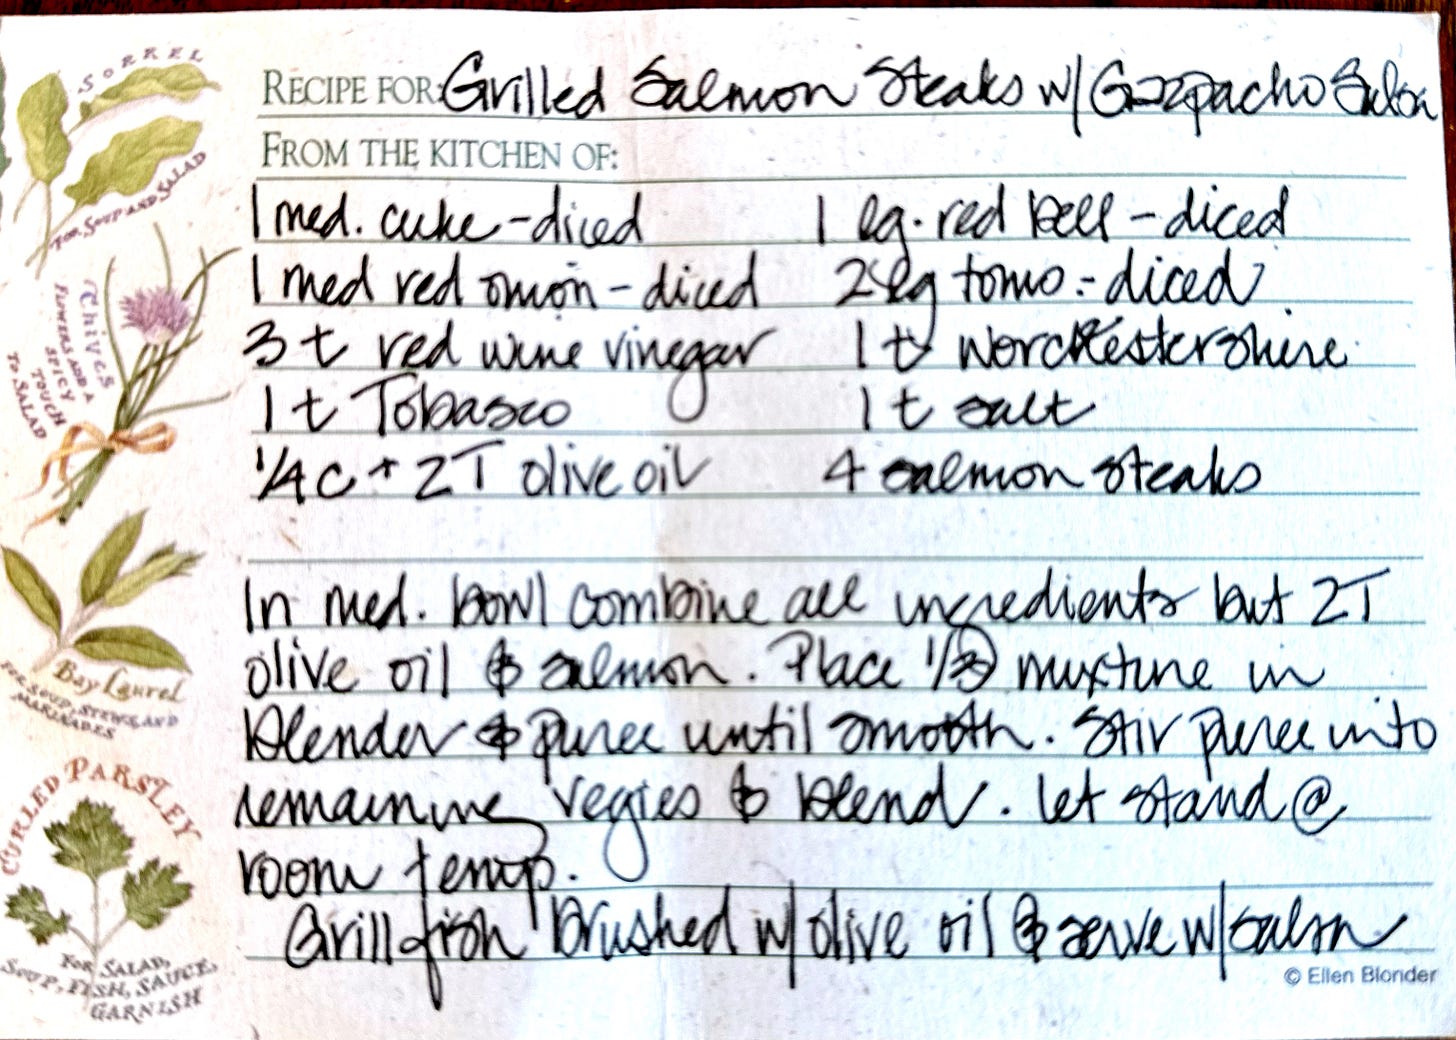 SORREL
FOR SOUP AND SALAD
Chives
FLOWERS AND A
SPICY
TOUCH
TO SALAD
Bay Laurel
FOR SOUP, STEWS, AND
MARINADES
CURLED PARSLEY
FOR SALAD,
SOUP, FISH, SAUCE,
GARNISH
RECIPE FOR: Grilled Salmon Steaks w/ Gazpacho Salsa
FROM THE KITCHEN OF:
1 med. cuke - diced 1 lg. red bell - diced
1 med red onion - diced 2 lg toms. - diced
3 t red wine vinegar 1 t Worchestershire
1 t Tobasco 1 t salt
1/4 c + 2T olive oil 4 salmon steaks
In med. bowl combine all ingredients but 2T
olive oil & salmon. Place 1/3 mixture in
blender & puree until smooth. Stir puree into
remaining vegies & blend. Let stand @
room temp.
Grill fish brushed w/ olive oil & serve w/ salsa
© Ellen Blonder